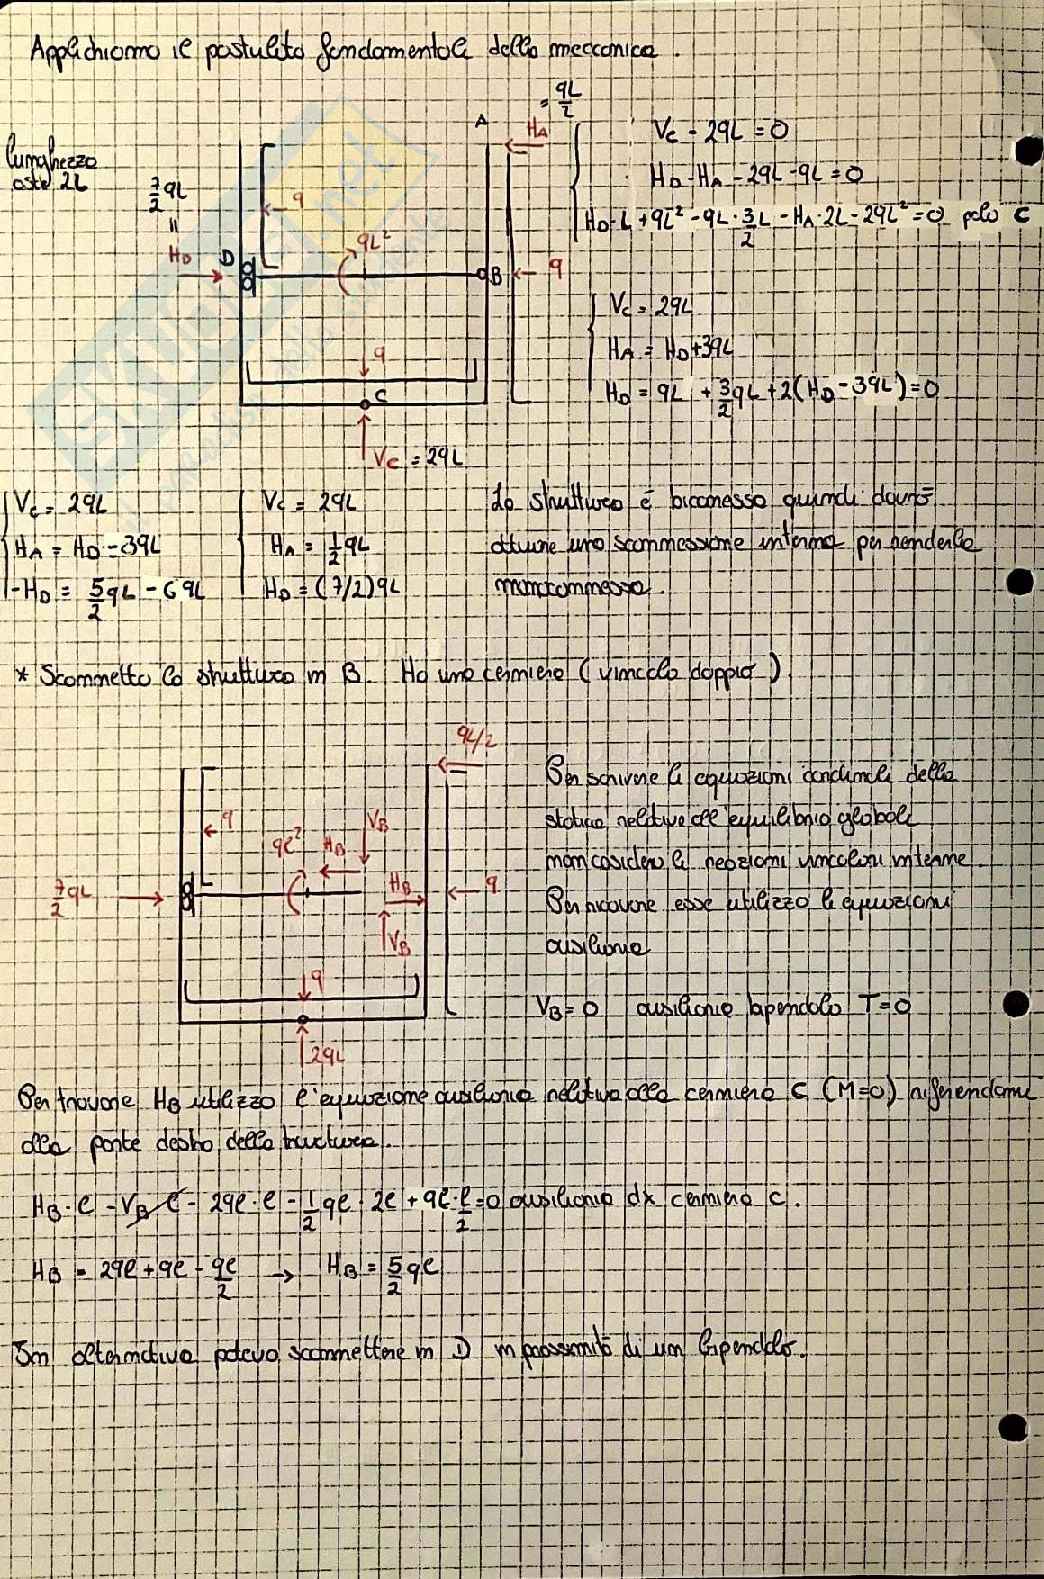 Applichiamo il postulato fondamentale della meccanica.
lunghezza
aste 2L
7/2 qL
=
H_D
D
q
qL²
A
= qL/2
H_A
B
q
q
C
V_C = 2qL
V_C - 2qL = 0
H_D - H_A - 2qL - qL = 0
H_D · L + qL² - qL · 3/2 L - H_A · 2L - 2qL² = 0 polo C
V_C = 2qL
H_A = H_D + 3qL
H_D = qL + 3/2 qL + 2(H_D - 3qL) = 0
V_C = 2qL
H_A = H_D - 3qL
-H_D = 5/2 qL - 6qL
V_C = 2qL
H_A = 1/2 qL
H_D = (7/2)qL
La struttura è biconnessa quindi dovrò
attuare una sconnessione interna per renderla
monoconnessa.
* Sconnetto la struttura in B. Ho una cerniera (vincolo doppio)
qL/2
q
ql²
H_B
V_B
7/2 qL
H_B
q
V_B
q
2qL
Per scrivere le equazioni cardinali della
statica relative all'equilibrio globale
non considero le reazioni vincolari interne.
Per ricavare esse utilizzo le equazioni
ausiliarie
V_B = 0 ausiliaria bipendolo T=0
Per trovare H_B utilizzo l'equazione ausiliaria relativa alla cerniera C (M=0) riferendomi
alla parte destra della struttura.
H_B · l - V_B l - 2ql · l - 1/2 ql · 2l + ql · l/2 = 0 ausiliaria dx cerniera C.
H_B = 2ql + ql - ql/2 → H_B = 5/2 ql
In alternativa potevo sconnettere in D in prossimità di un bipendolo.